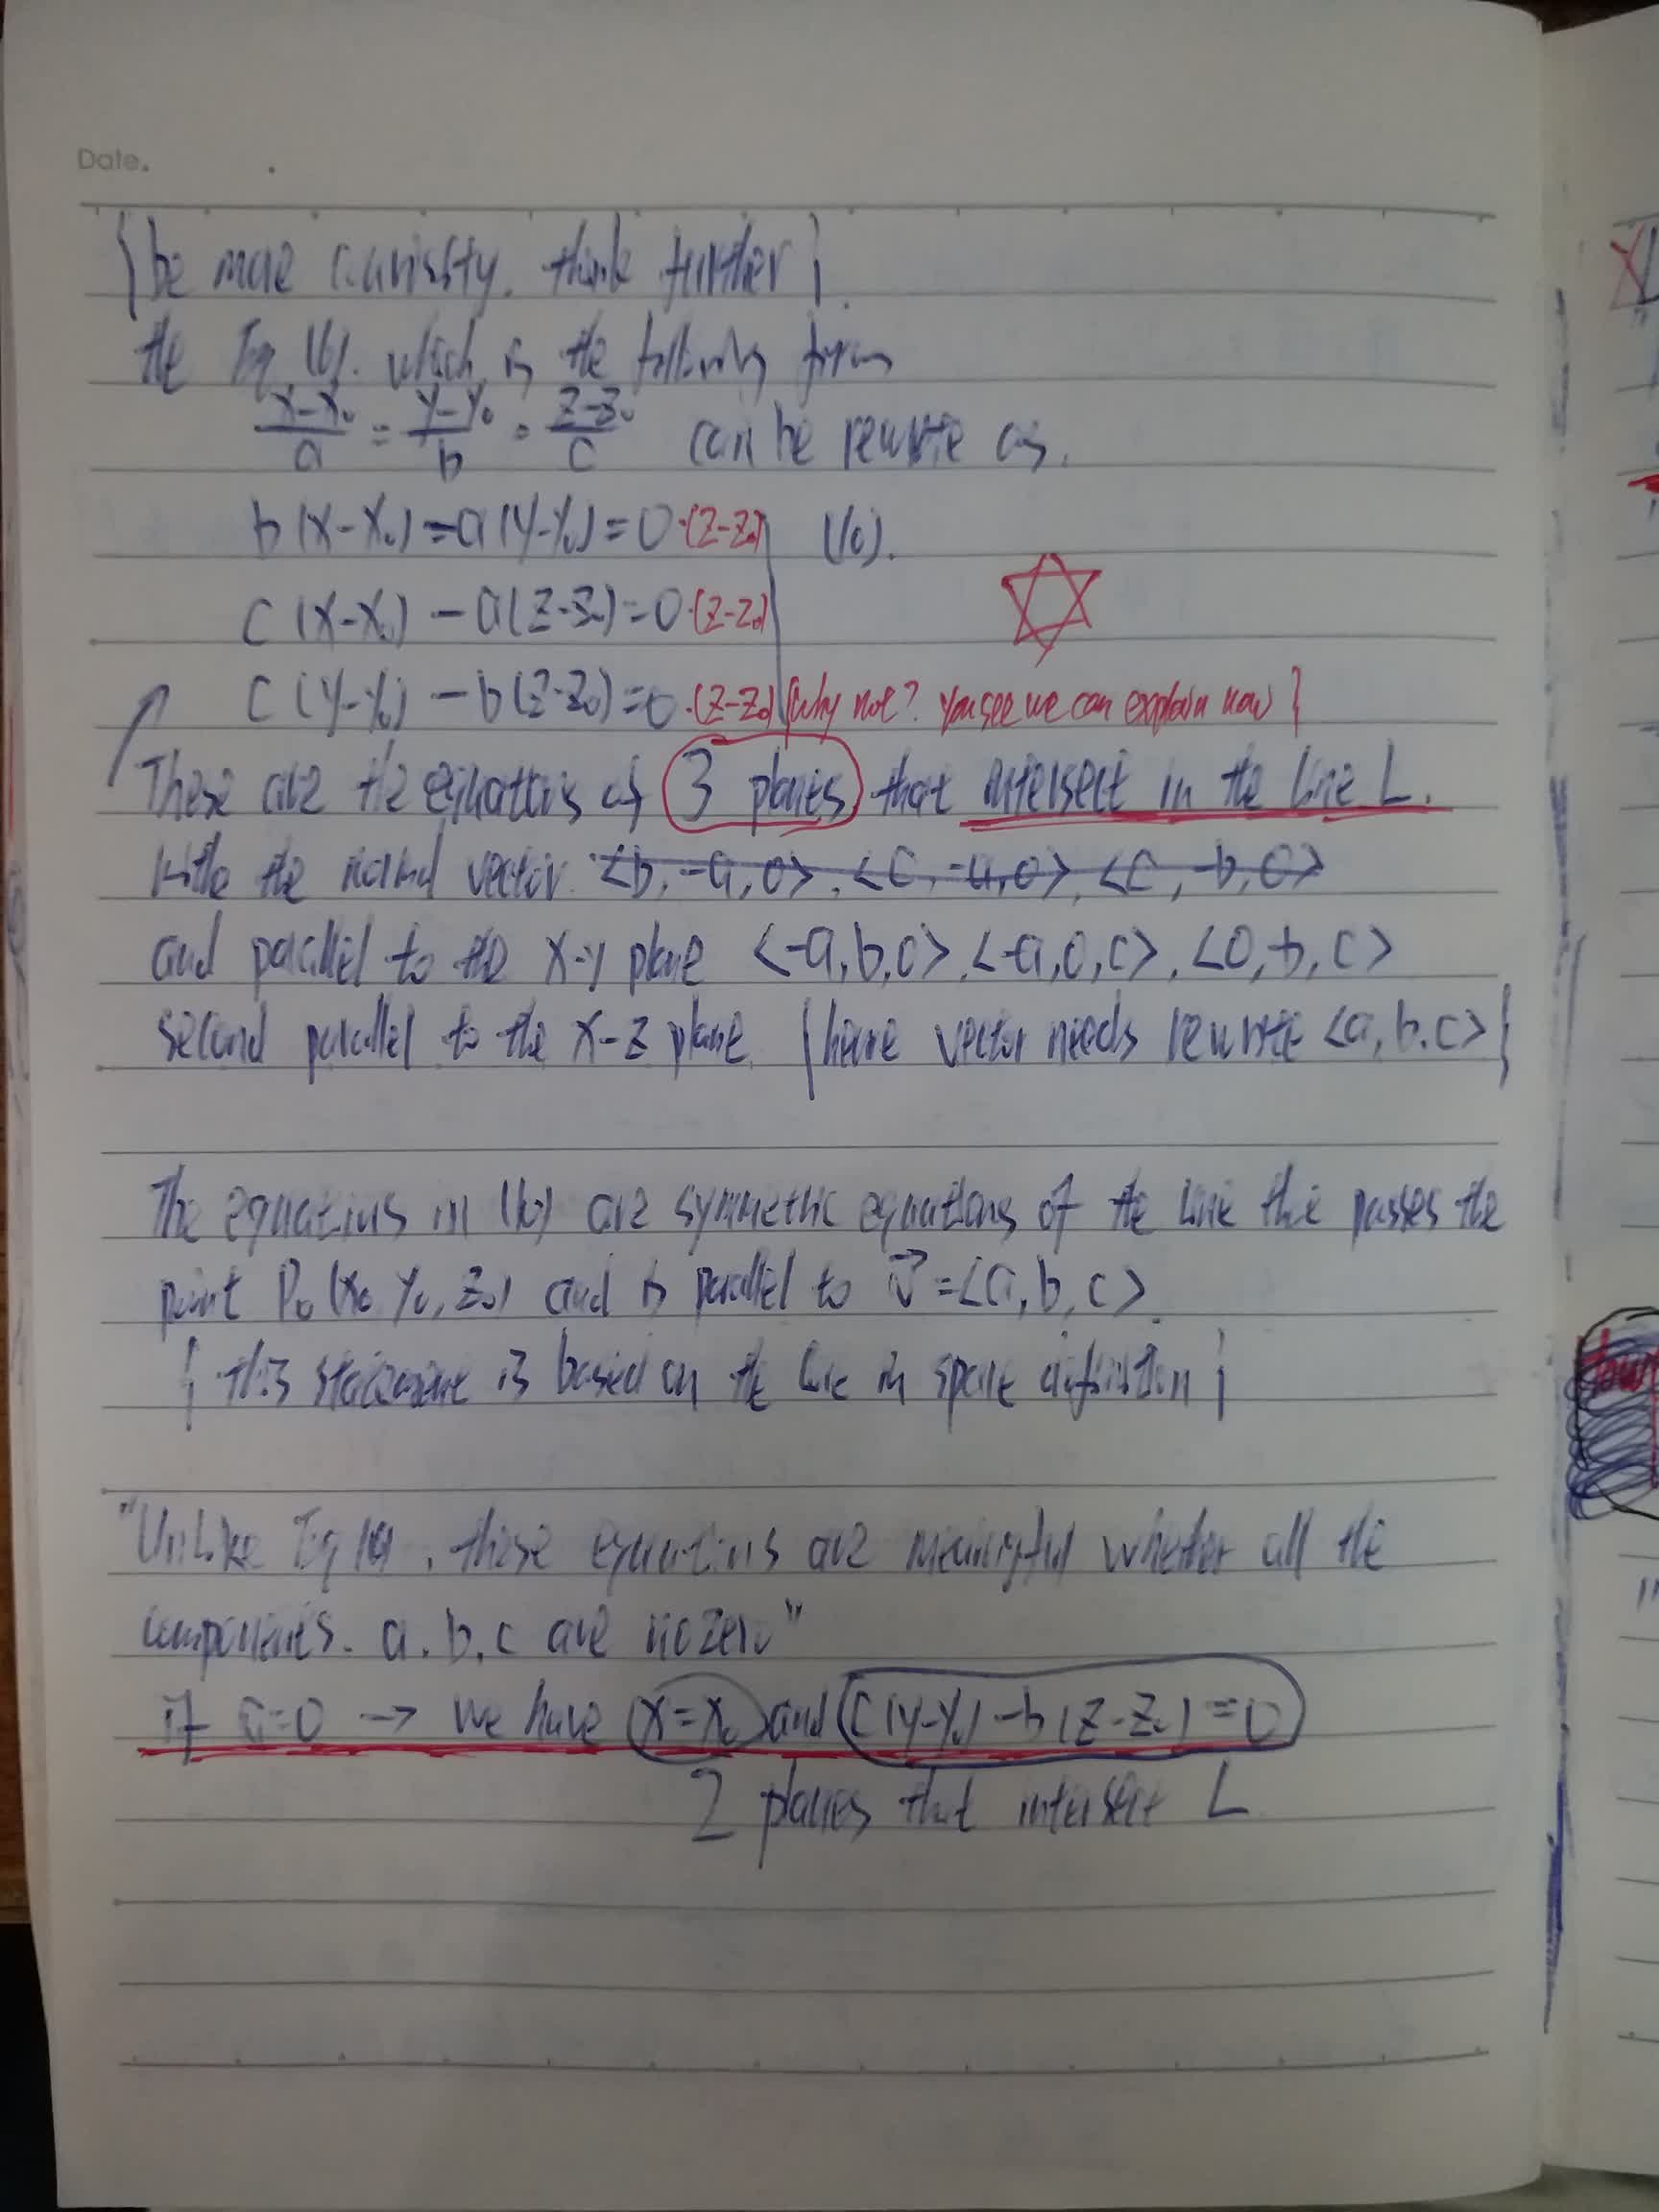 Date.
{be more curiosity. think further}.
the Eq (6). which is the following form
x-x₀/a = y-y₀/b = z-z₀/c can be rewrite as.
b(x-x₀)-a(y-y₀)=0·(z-z₀) (10).
c(x-x₀)-a(z-z₀)=0·(z-z₀)
c(y-y₀)-b(z-z₀)=0·(z-z₀) {why not? you see we can explain now}
These are the equations of 3 planes that intersect in the line L.
with the normal vector <b,-a,0>, <c,-a,0>, <c,-b,0>
and parallel to the x-y plane <-a,b,0>,<-a,0,c>,<0,-b,c>
second parallel to the x-z plane. {here vector needs rewrite <a,b.c>}
The equations in (10) are symmetric equations of the line the passes the
point P₀(x₀ y₀,z₀) and is parallel to v⃗=<a,b,c>.
{this statement is based on the line in space definition}
"Unlike Eq , these equations are meaningful whether all the
components. a.b.c are nozero"
if a=0 → we have (x=x₀) and c(y-y₀)-b(z-z₀)=0
2 planes that intersect L